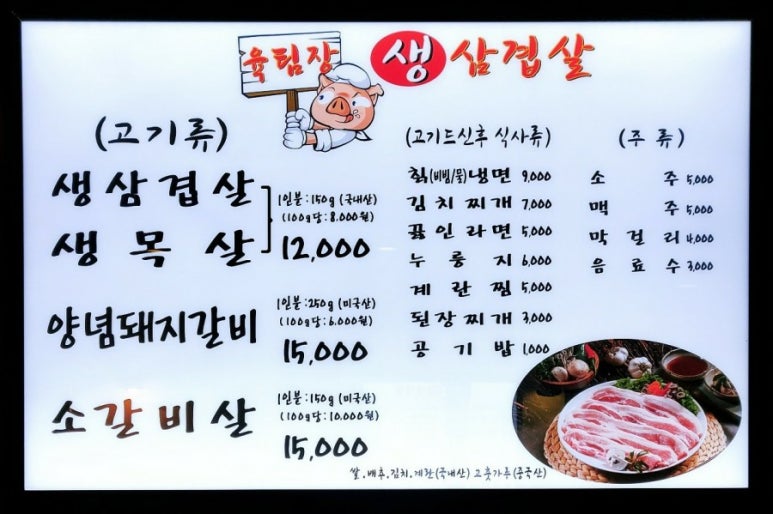 육팀장 생삼겹살
(고기류)
생삼겹살
생목살
1인분:150g (국내산)
(100g당:8.000원)
12,000
양념돼지갈비
1인분:250g (미국산)
(100g당:6.000원)
15,000
소갈비살
1인분:150g (미국산)
(100g당:10.000원)
15,000
(고기드신후 식사류)
칡(비빔/물)냉면 9,000
김치찌개 7,000
끓인라면 5,000
누룽지 6,000
계란찜 5,000
된장찌개 3,000
공기밥 1,000
(주류)
소주 5,000
맥주 5,000
막걸리 4,000
음료수 3,000
쌀.배추.김치.계란(국내산) 고춧가루(중국산)